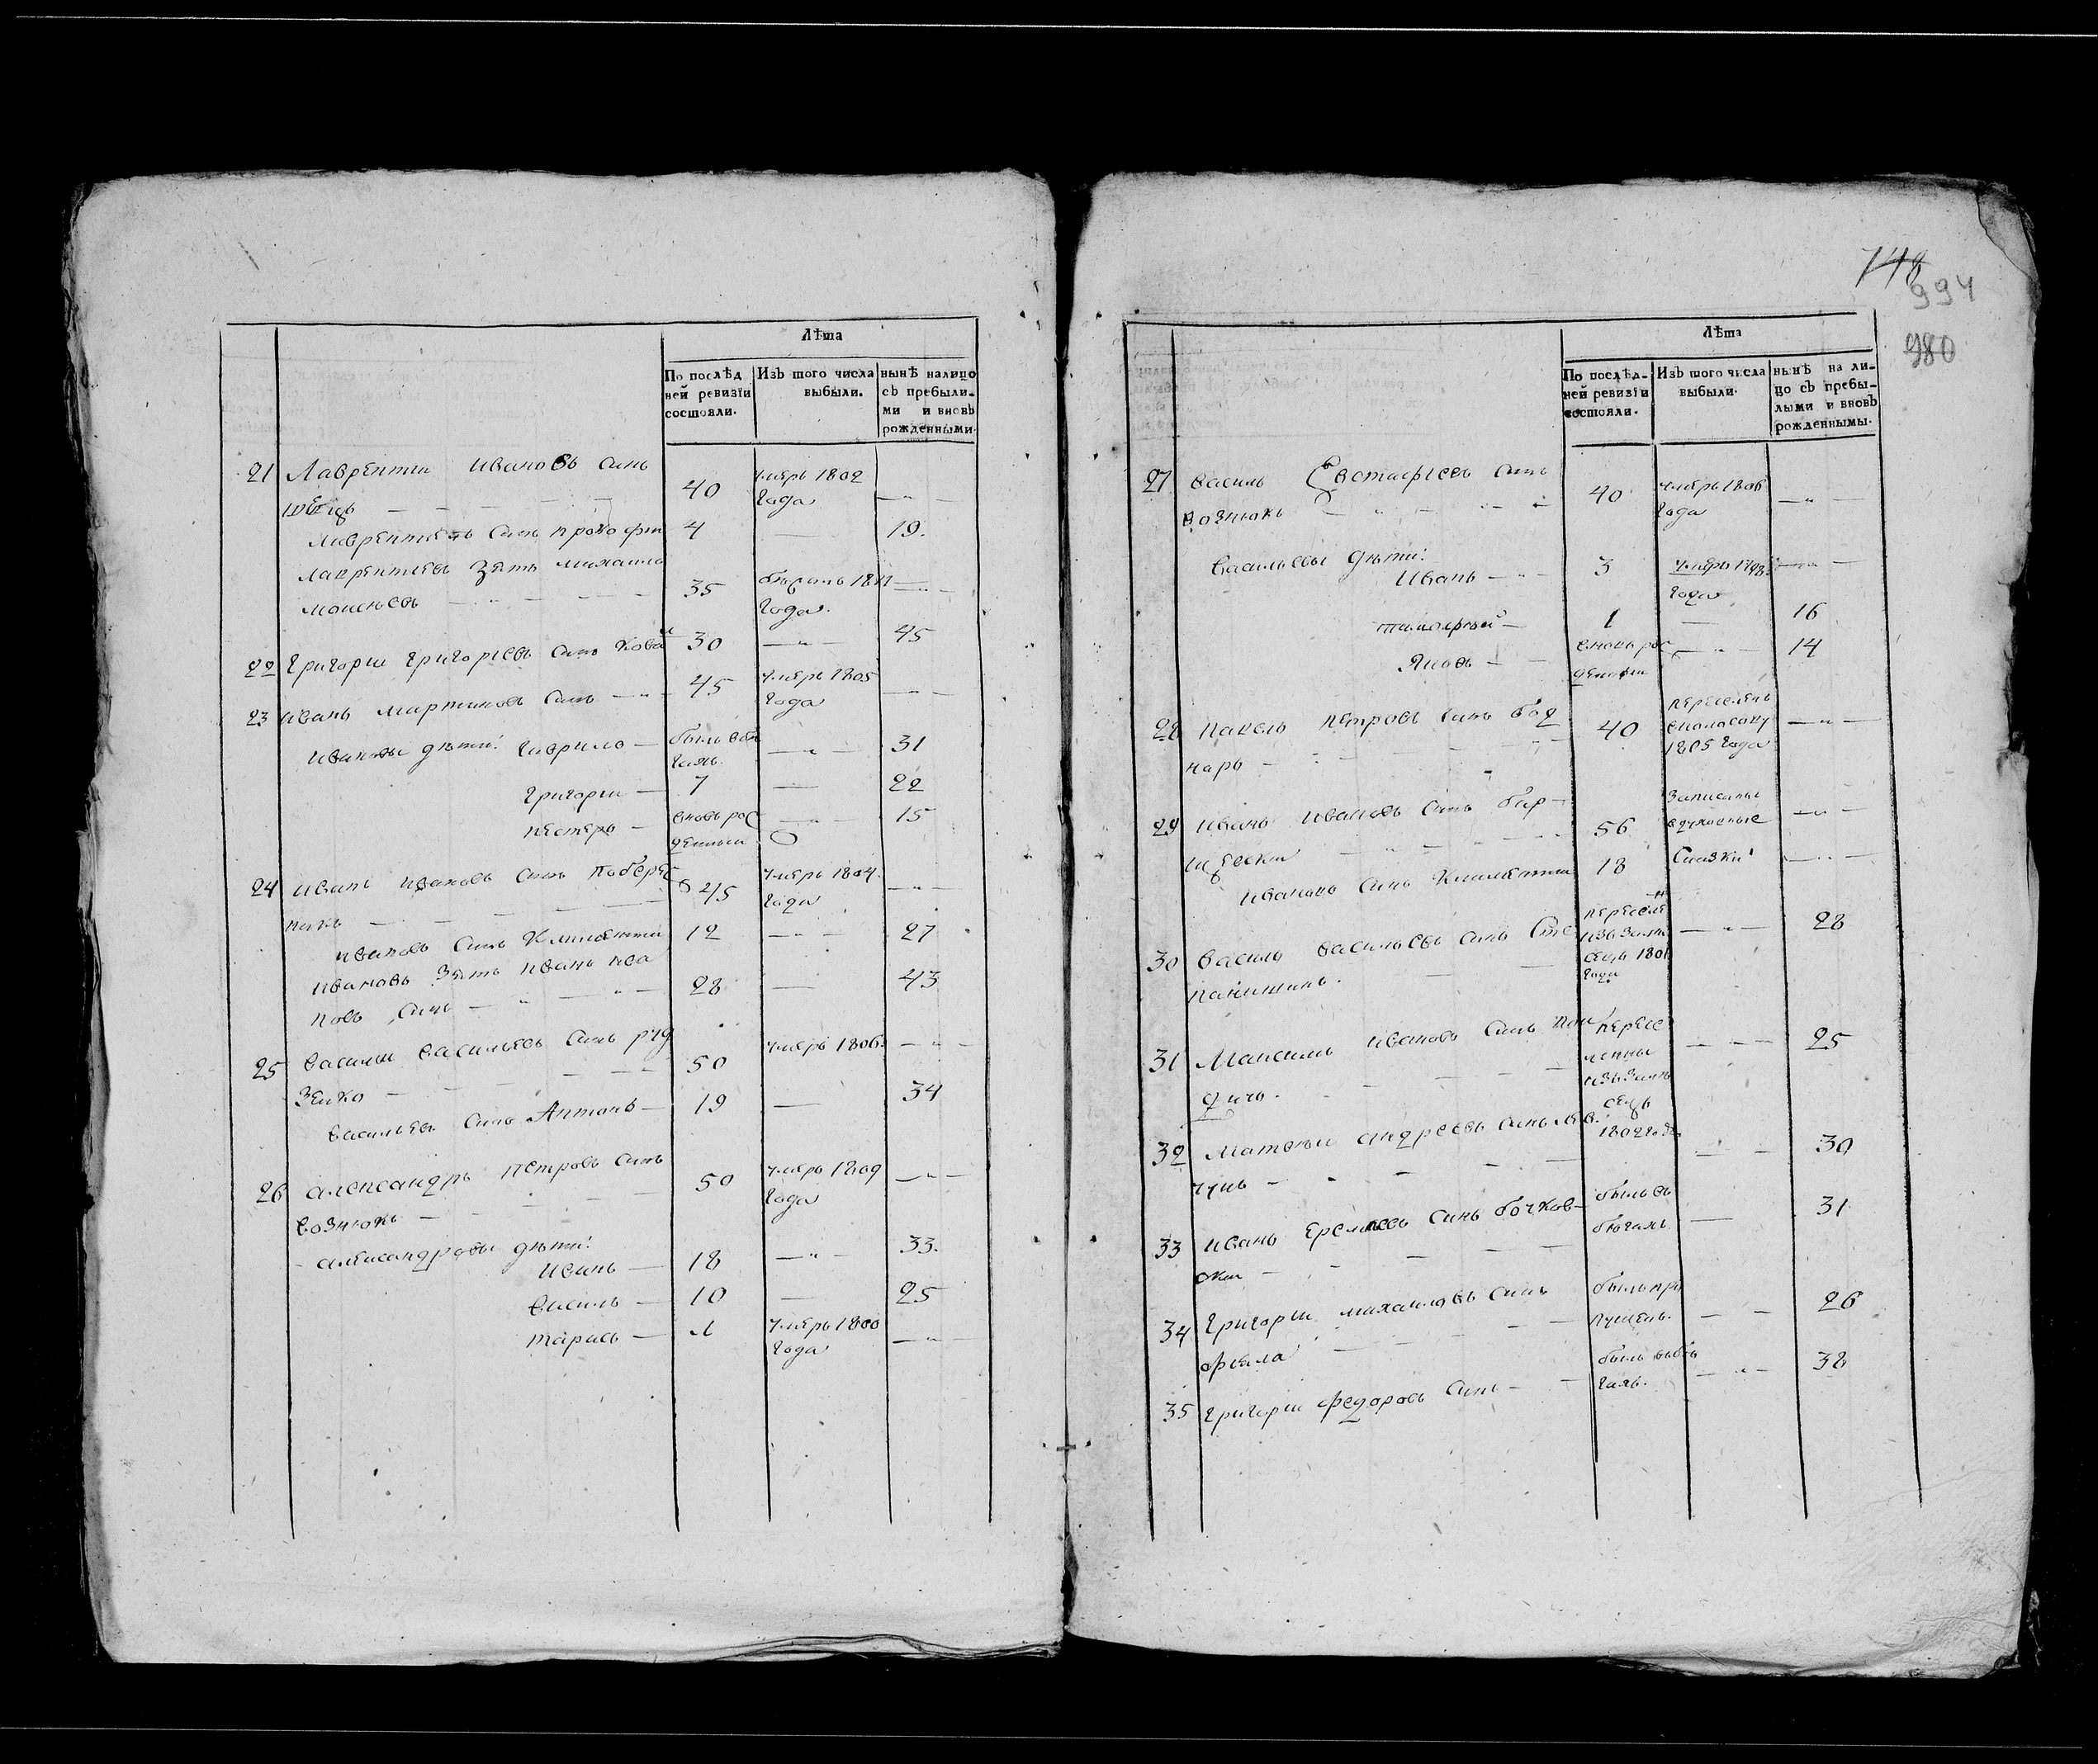 Лѣта
По послѣд
ней ревизїи
состояли.
Изъ того числа
выбыли.
нынѣ налицо
съ пребыли-
ми и вновь
рожденными.
21 Лаврентии Ивановъ синъ
швецъ 40 умеръ 1802
года
Лаврентиевъ синъ прокофи 4 19.
Лаврентиевъ зять михаило
моисѣевъ 35 1811
года.
22 Григории григориевъ синъ ковал 30 45
23 Иванъ мартиновъ синъ 45 умеръ 1805
года
Ивановы дѣти: гаврило былъ въ бѣ
гахъ. 31
григории 7 22
петеръ вновь рос
денныи 15
24 Иванъ Ивановъ синъ побереж
никъ 45 умеръ 1804.
года
Ивановъ синъ Климентии 12 27
Ивановъ зять Иванъ Ива
новъ синъ 28 43
25 Василии васильевъ синъ руд
зенко 50 умеръ 1806.
васильевъ синъ Антонъ 19 34
26 александръ петровъ синъ
вознюкъ 50 умеръ 1809
года
александровы дѣти:
Иванъ 18 33.
василь 10 25
тарасъ умеръ 1800
года
748
994
980
Лѣта
По послѣд-
ней ревизїи
состояли.
Изъ того числа
выбыли.
нынѣ на ли-
цо съ пребы-
лыми и вновь
рожденнымы.
27 василь Евстафиевъ синъ
вознюкъ 40 умеръ 1806
года
васильевы дѣти:
Иванъ 3 умеръ
года
тимофѣй 1 16
Яковъ вновь рос
денныи 14
28 павело петровъ синъ бод
наръ 40 переселенъ
1805 года
29 Иванъ Ивановъ синъ бар-
щевски 56 записаны
в духовные
Ивановъ синъ Климентии 18 сказки
30 василь васильевъ синъ Сте
панишинъ. переселе
изъ
1801
года 28
31 Максимъ Ивановъ синъ
пересе
ленны
изъ
1802 года 25
32 Матвѣи андреевъ синъ
30
33 Иванъ Еремѣевъ синъ бочков-
ски былъ въ
бѣгахъ 31
34 Григории михаиловъ синъ
былъ про
пущенъ. 26
35 григории федоровъ синъ былъ въ бѣ
гахъ. 38